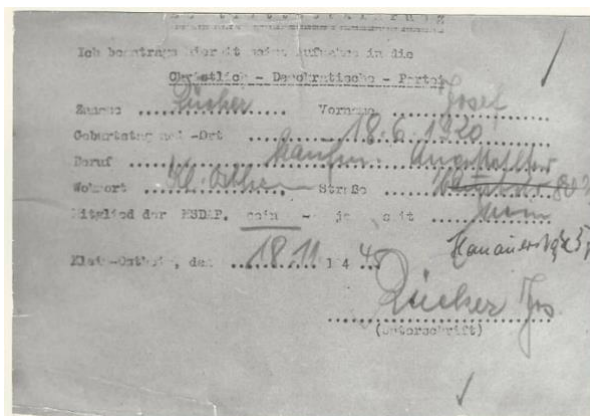 Beitrittserklärung
Ich beantrage hiermit meine Aufnahme in die
Christlich - Demokratische - Partei
Zuname Rücker Vorname Josef
Geburtstag und -Ort 18.6.1920
Beruf kaufm. Angestellter
Wohnort Kl. Ostheim Straße
Mitglied der NSDAP. nein - ja seit nein
Hanauerstr
Klein-Ostheim, den 18.11 194
Rücker Jos.
(Unterschrift)